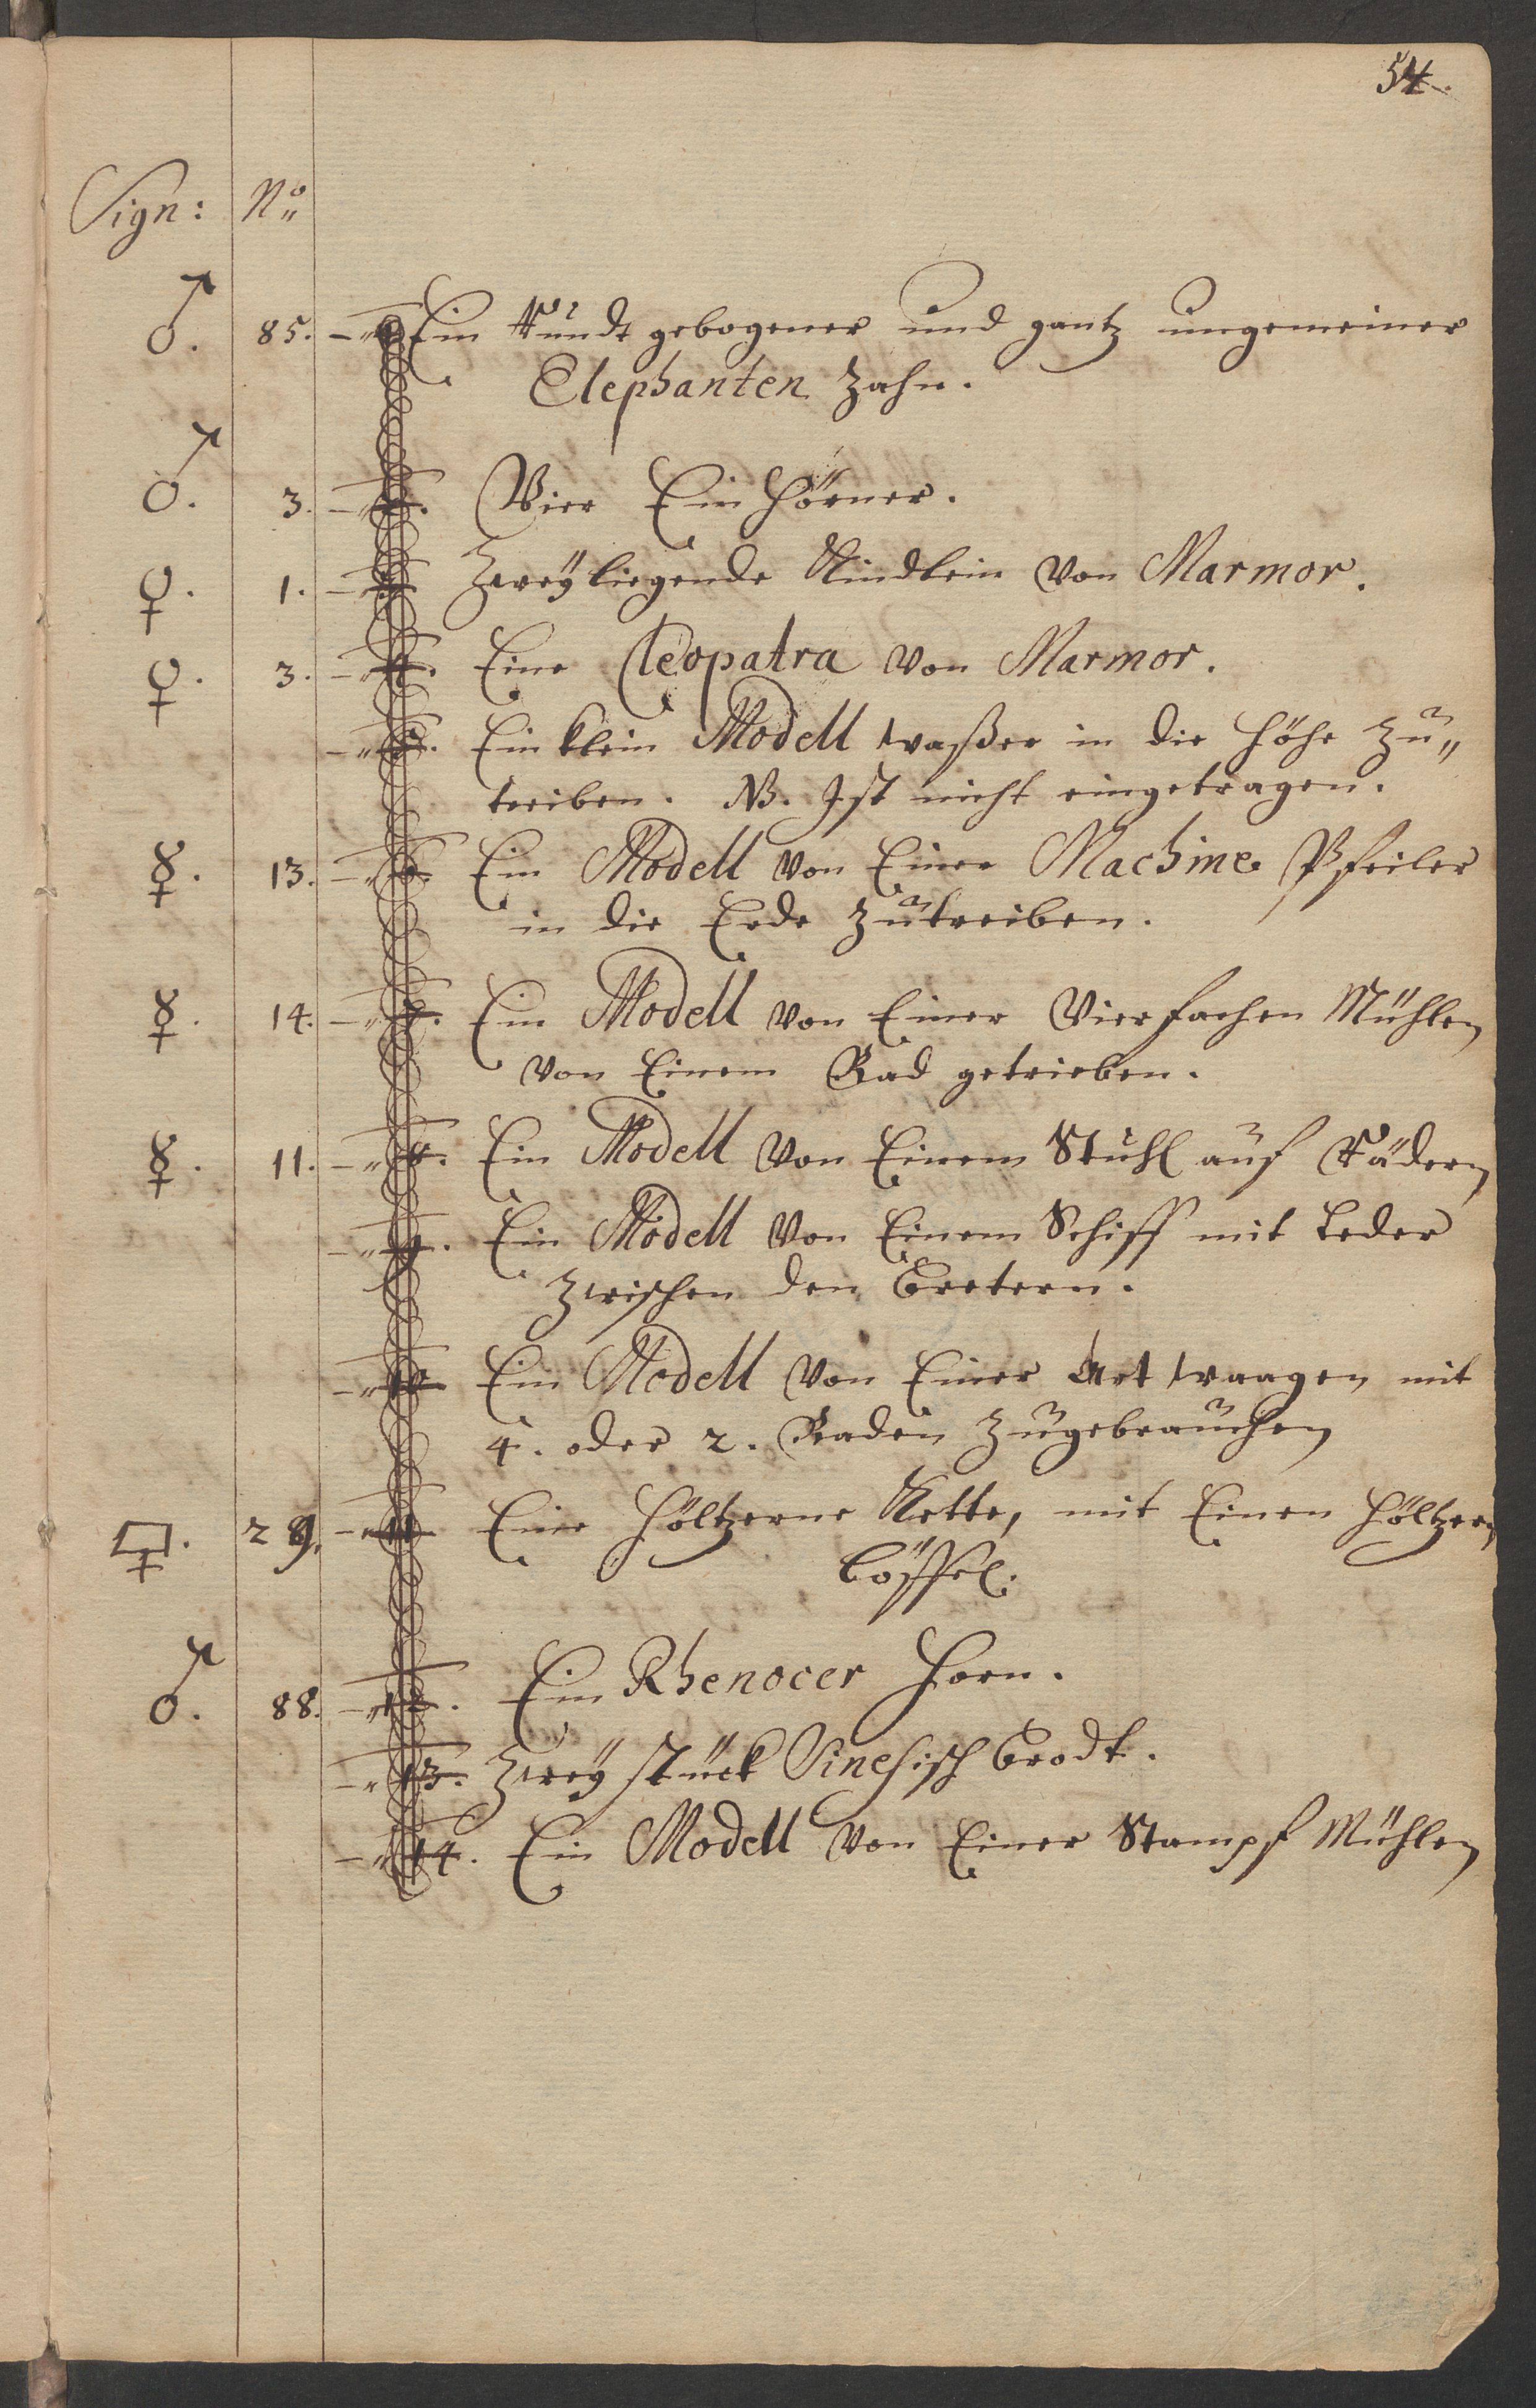 54.
Sign: No
♂. 85. Ein Rundt gebogener und gantz ungemeiner
Elephanten Zahn.
♂. 3. Vier Ein Hörner.
♀. 1. Zweÿ liegende Kindlein von Marmor.
♀. 3. 4. Eine Cleopatra von Marmor.
Ein klein Modell waßer in die Höhe zu„
treiben. NB. Ist nicht eingetragen.
☿. 13. Ein Modell von Einer Machine Pfeiler
in die Erde zutreiben.
☿. 14. 7. Ein Modell von Einer Vierfachen Mühlen
von Einem Rad getrieben.
☿. 11. 8. Ein Modell von Einem Stuhl auf Rädern
9. Ein Modell von Einem Schiff mit Leder
zwischen den Bretern.
10. Ein Modell von Einer Art waagen mit
4. oder 2. Raden zugebrauchen
29. 11. Eine Höltzerne Kette, mit Einen Höltzern
Löffel.
♂. 88. 12. Ein Rhenocer Horn.
13. Zweÿ stück Sinesisch Brodt.
14. Ein Modell von Einer Stampf Mühlen